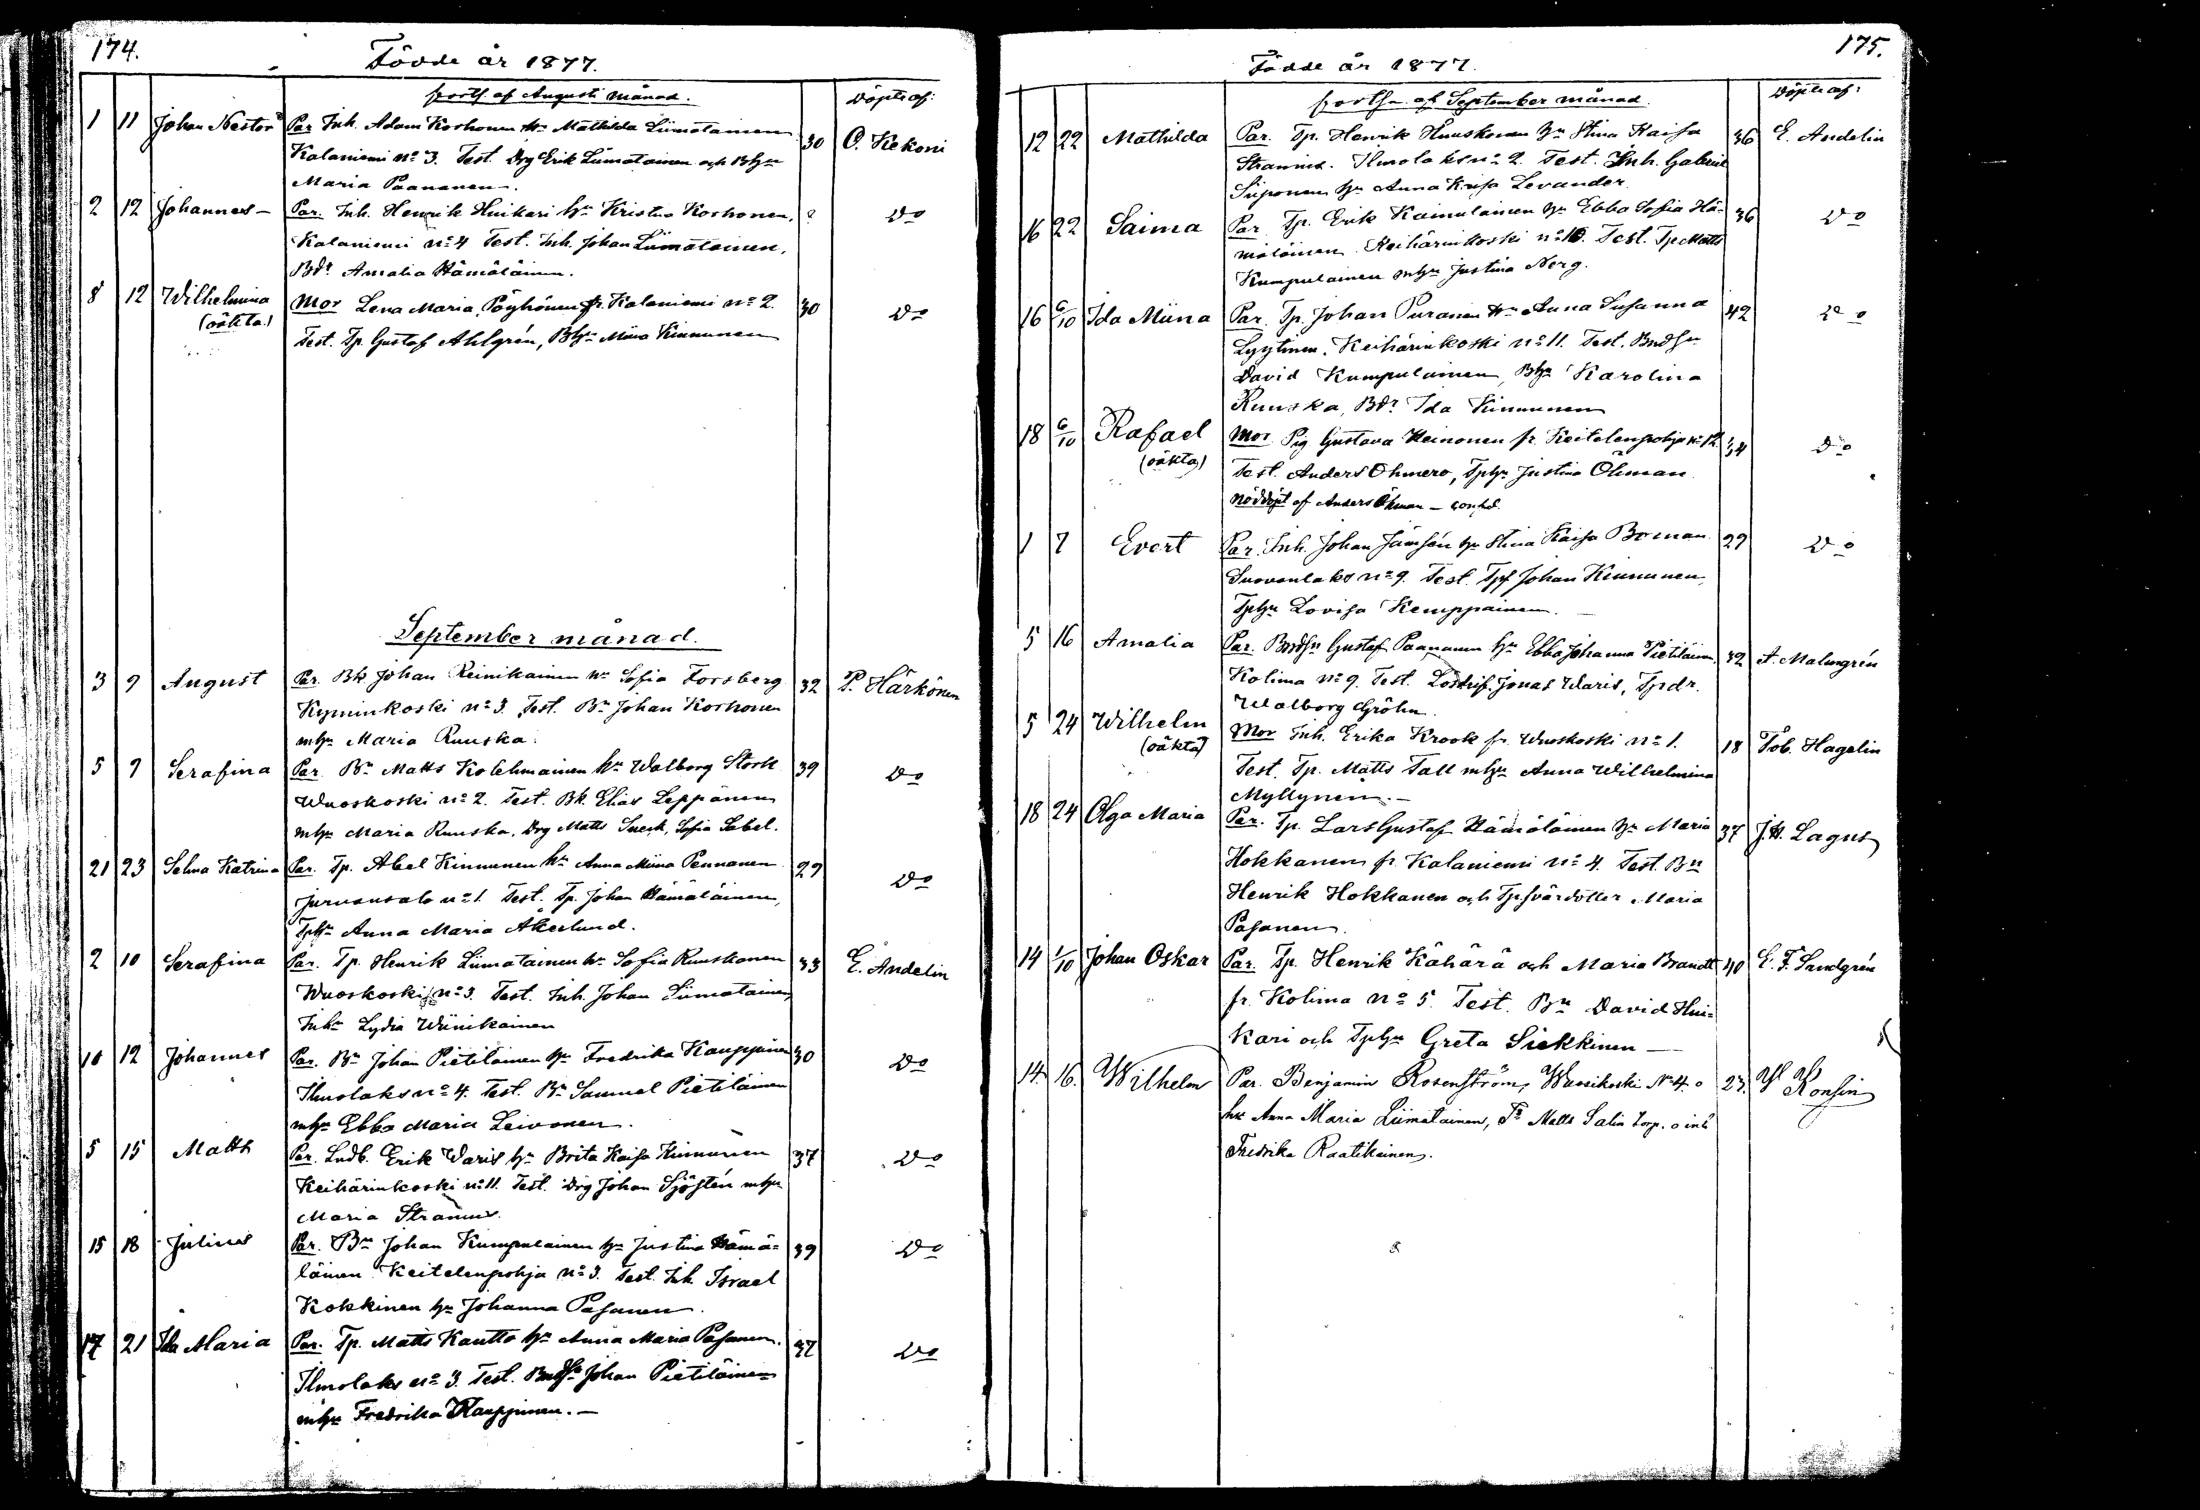 174.
Födde år 1877.
forts. af Augusti månad.
Döpte af:
1 11 Johan Nestor Par. Inh. Adam Korhonen hu Mathilda Liimatainen 30 O. Kekoni
Kalaniemi no 3. Test. Drg Erik Liimatainen och Bhu
Maria Paananen.
2 12 Johannes – Par. Inh. Henrik Huikari hu Kristina Korhonen, ? Do
Kalaniemi no 4 Test. Inh. Johan Liimatainen,
Bdr Amalia Hämäläinen.
8 12 Wilhelmina Mor Lena Maria Pöyhönen fr. Kalaniemi no 2. 30 Do
(oäkta) Test. Tp. Gustaf Ahlgrén, Bhu Miina Kinnunen
September månad.
3 9 August Par. Bk Johan Reinikainen hu Sofia Forsberg 32 P. Härkönen
Kyminkoski no 3. Test. Bn Johan Korhonen
mhu Maria Ruuska.
5 9 Serafina Par. Bn Matts Kolehmainen hu Walborg Stork 39 Do
Wuoskoski no 2. Test. Bk. Elias Leppänen
mhu Maria Ruuska, Drg Matts Sneck, Sofia Sabel.
21 23 Selma Katrina Par. Tp. Abel Kinnunen hu Anna Miina Pennanen 29 Do
Jurvansalo no 1. Test. Tp. Johan Hämäläinen,
Tphu Anna Maria Åkerlund.
2 10 Serafina Par. Tp. Henrik Liimatainen hu Sofia Ruuskanen 33 E. Andelin
Wuoskoski no 3. Test. Inh. Johan Liimatainen,
Inhu Lydia Wiinikainen
10 12 Johannes Par. Bn Johan Pietiläinen hu Fredrika Kauppinen 30 Do
Ilmolaks no 4. Test. Bn Samuel Pietiläinen
mhu Ebba Maria Leivonen.
5 15 Matts Par. Ludb. Erik Waris hu Brita Kaisa Kinnunen 37 Do
Keihärinkoski no 11. Test. Drg Johan Sjöstén mhu
Maria Strannius.
15 18 Julius Par. Bn Johan Kumpulainen hu Justina Hämä= 39 Do
läinen Keitelenpohja no 3. Test. Inh. Israel
Kokkinen hu Johanna Pasanen.
17 21 Ida Maria Par. Tp. Matts Kautto hu Anna Maria Pasanen. 32 Do
Ilmolaks no 3. Test. Bndsn Johan Pietiläinen
mhu Fredrika Kauppinen. –
175.
Födde år 1877.
forts. af September månad.
Döpte af:
12 22 Mathilda Par. Tp. Henrik Ruuskanen hu Stina Kaisa 36 E. Andelin
Strannius. Ilmolaks no 2. Test. Inh. Gabriel
Siiponen hu Anna Kajsa Levander.
16 22 Saima Par. Tp. Erik Kainulainen hu Ebba Sofia Hä= 36 Do
mäläinen. Keihärinkoski no 10. Test. Tp. Matts
Kumpulainen mhu Justina Nerg.
16 6/10 Ida Miina Par. Tp. Johan Puranen hu Anna Susanna 42 Do
Lyytinen. Keihärinkoski no 11. Test. Bndsn
David Kumpulainen, Bhu Karolina
Ruuska, Bdr Ida Kinnunen
18 6/10 Rafael Mor Pig Gustava Heinonen fr. Keitelenpohja no 12 34 Do
(oäkta) Test. Anders Öhman, Tphu Justina Öhman.
Nöddöpt af Anders Öhman –
1 7 Evert Par. Inh. Johan Jämsén hu Stina Kaisa Boman 29 Do
Suovanlaks no 9. Test. Tp. Johan Kinnunen,
Tphu Lovisa Kemppainen.
5 16 Amalia Par. Bndsn Gustaf Paananen hu Ebba Johanna Pietiläinen, 32 A. Malmgrén
Kolima no 9. Test. Lösdrif. Jonas Waris, Tpdr.
Walborg Gröhn.
5 24 Wilhelm Mor Inh. Erika Krook fr. Wuoskoski no 1. 18 Tob. Hagelin
(oäkta) Test. Tp. Matts Tall mhu Anna Wilhelmina
Myllynen. –
18 24 Olga Maria Par. Tp. Lars Gustaf Hämäläinen hu Maria 37 J. H. Lagus
Hokkanen fr. Kalaniemi no 4. Test. Bn
Henrik Hokkanen och Tpsvärdotter Maria
Pasanen.
14 1/10 Johan Oskar Par. Tp. Henrik Kähärä och Maria Brandt 40 E. F. Sandgrén
fr. Kolima no 5. Test. Bn David Hui=
kari och Tphu Greta Siekkinen –
14 16. Wilhelm Par. Benjamin Rosenström, Wuoskoski No 4. o 23. Konsin
hu Anna Maria Liimatainen, Matts Salin Torp. o inh
Fredrika Raatikainen.